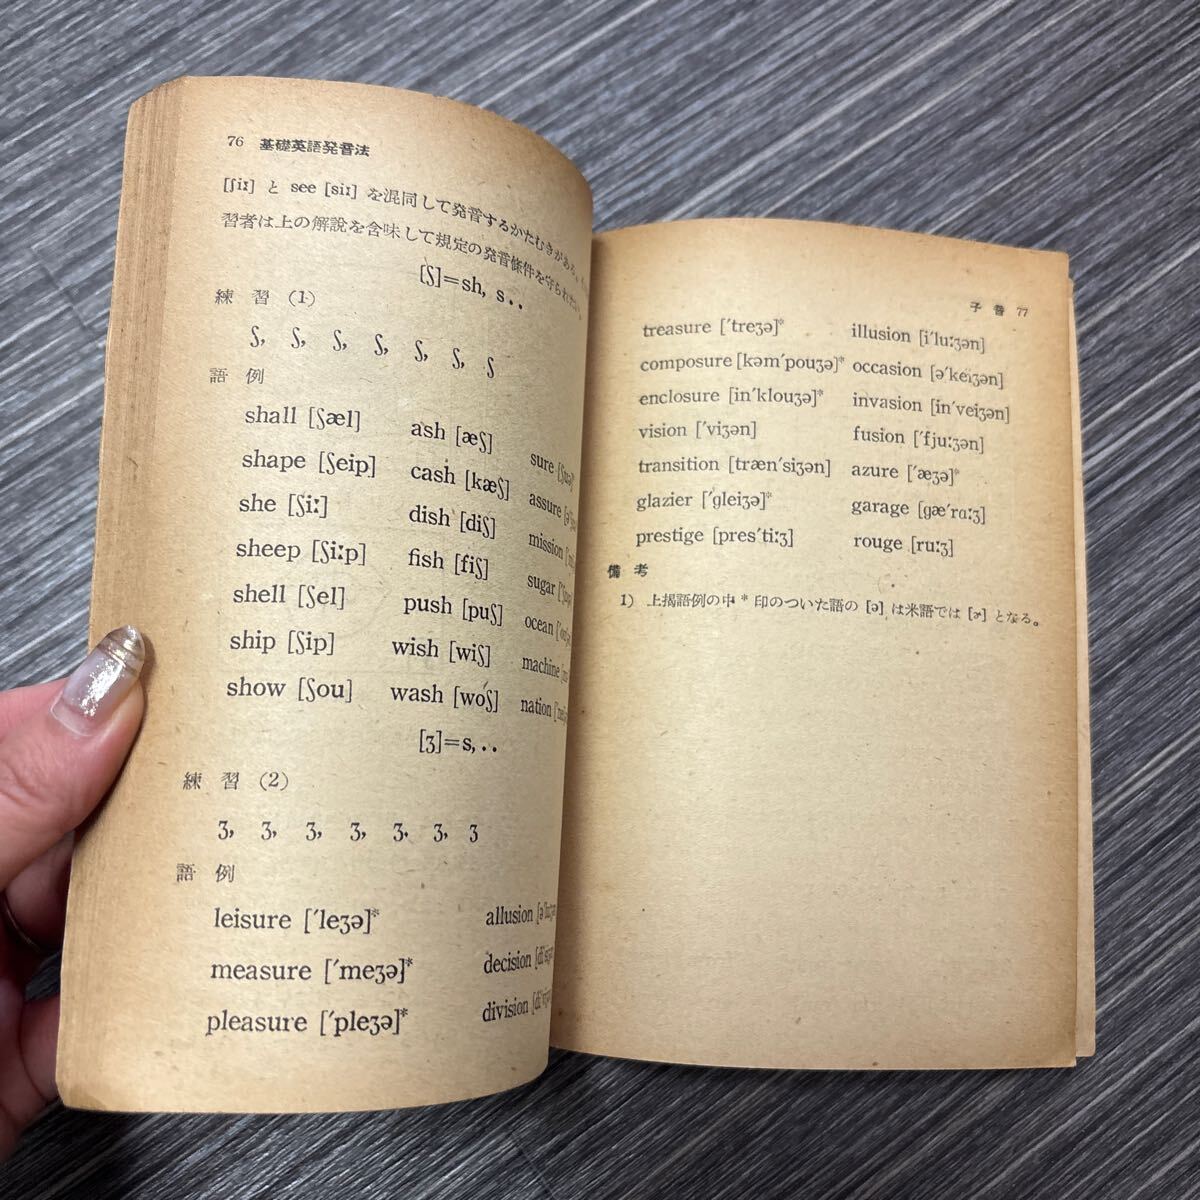 76 基礎英語発音法
[ʃiː] と see [siː] を混同して発音するかたむきがある。
習者は上の解説を含味して規定の発音條件を守られたい。
[ʃ]=sh, s..
練習 (1)
ʃ, ʃ, ʃ, ʃ, ʃ, ʃ, ʃ
語例
shall [ʃæl] ash [æʃ] sure [ʃuə]*
shape [ʃeip] cash [kæʃ] assure
she [ʃiː] dish [diʃ] mission
sheep [ʃiːp] fish [fiʃ] sugar
shell [ʃel] push [puʃ] ocean
ship [ʃip] wish [wiʃ] machine
show [ʃou] wash [woʃ] nation
[ʒ]=s, ..
練習 (2)
ʒ, ʒ, ʒ, ʒ, ʒ, ʒ, ʒ
語例
leisure [ˊleʒə]* allusion
measure [ˊmeʒə]* decision
pleasure [ˊpleʒə]* division
子音 77
treasure [ˊtreʒə]* illusion [iˊluːʒən]
composure [kəmˊpouʒə]* occasion [əˊkeiʒən]
enclosure [inˊklouʒə]* invasion [inˊveiʒən]
vision [ˊviʒən] fusion [ˊfjuːʒən]
transition [trænˊsiʒən] azure [ˊæʒə]*
glazier [ˊgleiʒə]* garage [gæˊrɑːʒ]
prestige [presˊtiːʒ] rouge [ruːʒ]
備考
1) 上掲語例の中 * 印のついた語の [ə] は米語では [ɚ] となる。